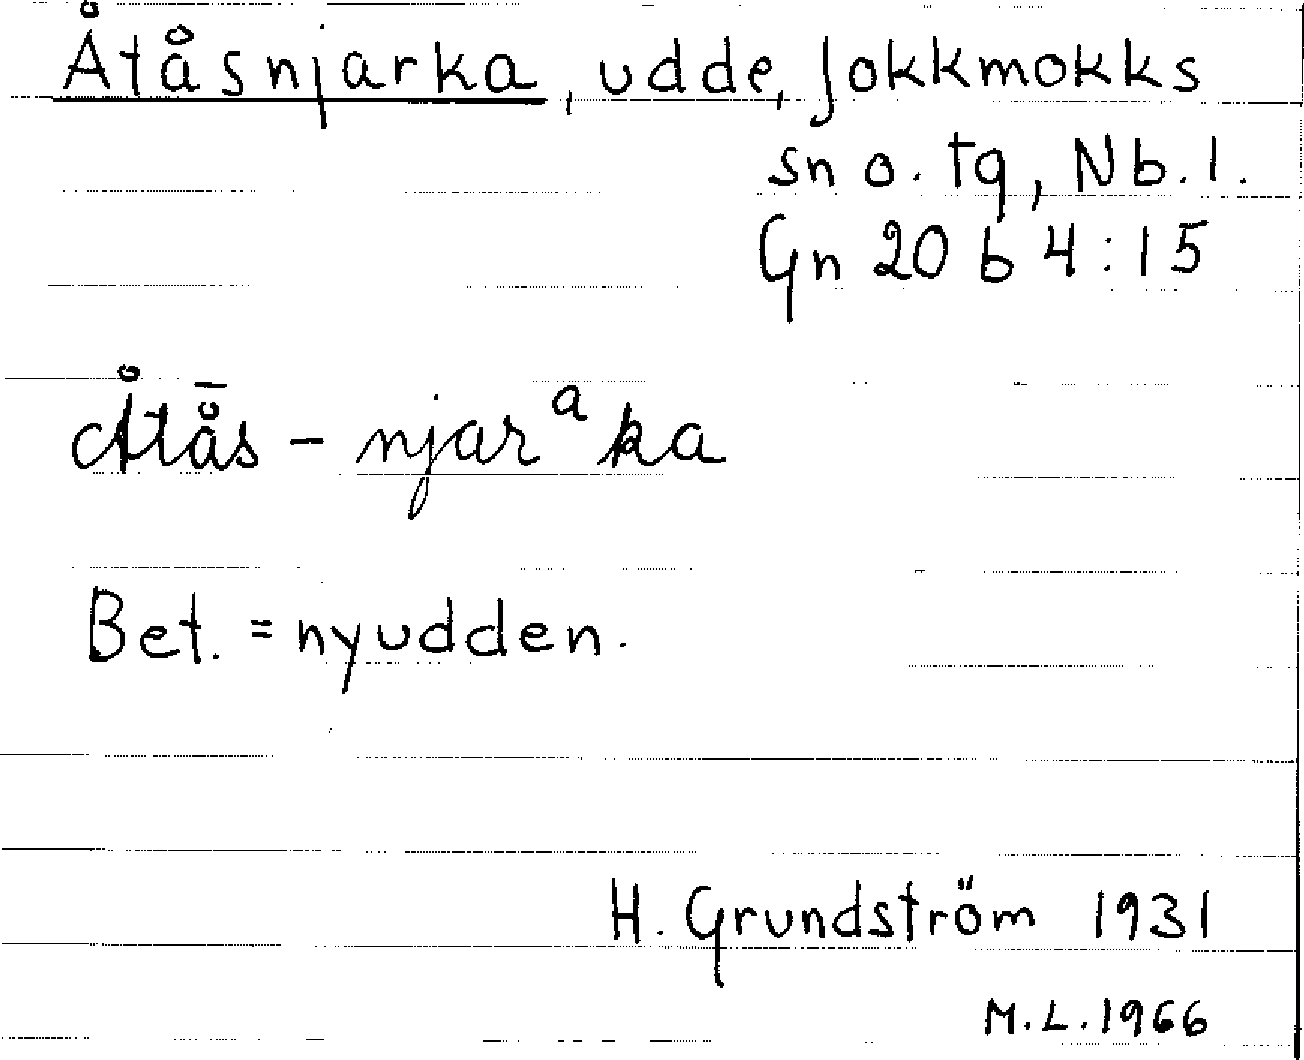 Åtåsnjarka, udde, Jokkmokks
sn o. tg, Nb. l.
Gn 20 b 4:15
Åtå̄s - njarᵃka
Bet. = nyudden.
H. Grundström 1931
M.L. 1966